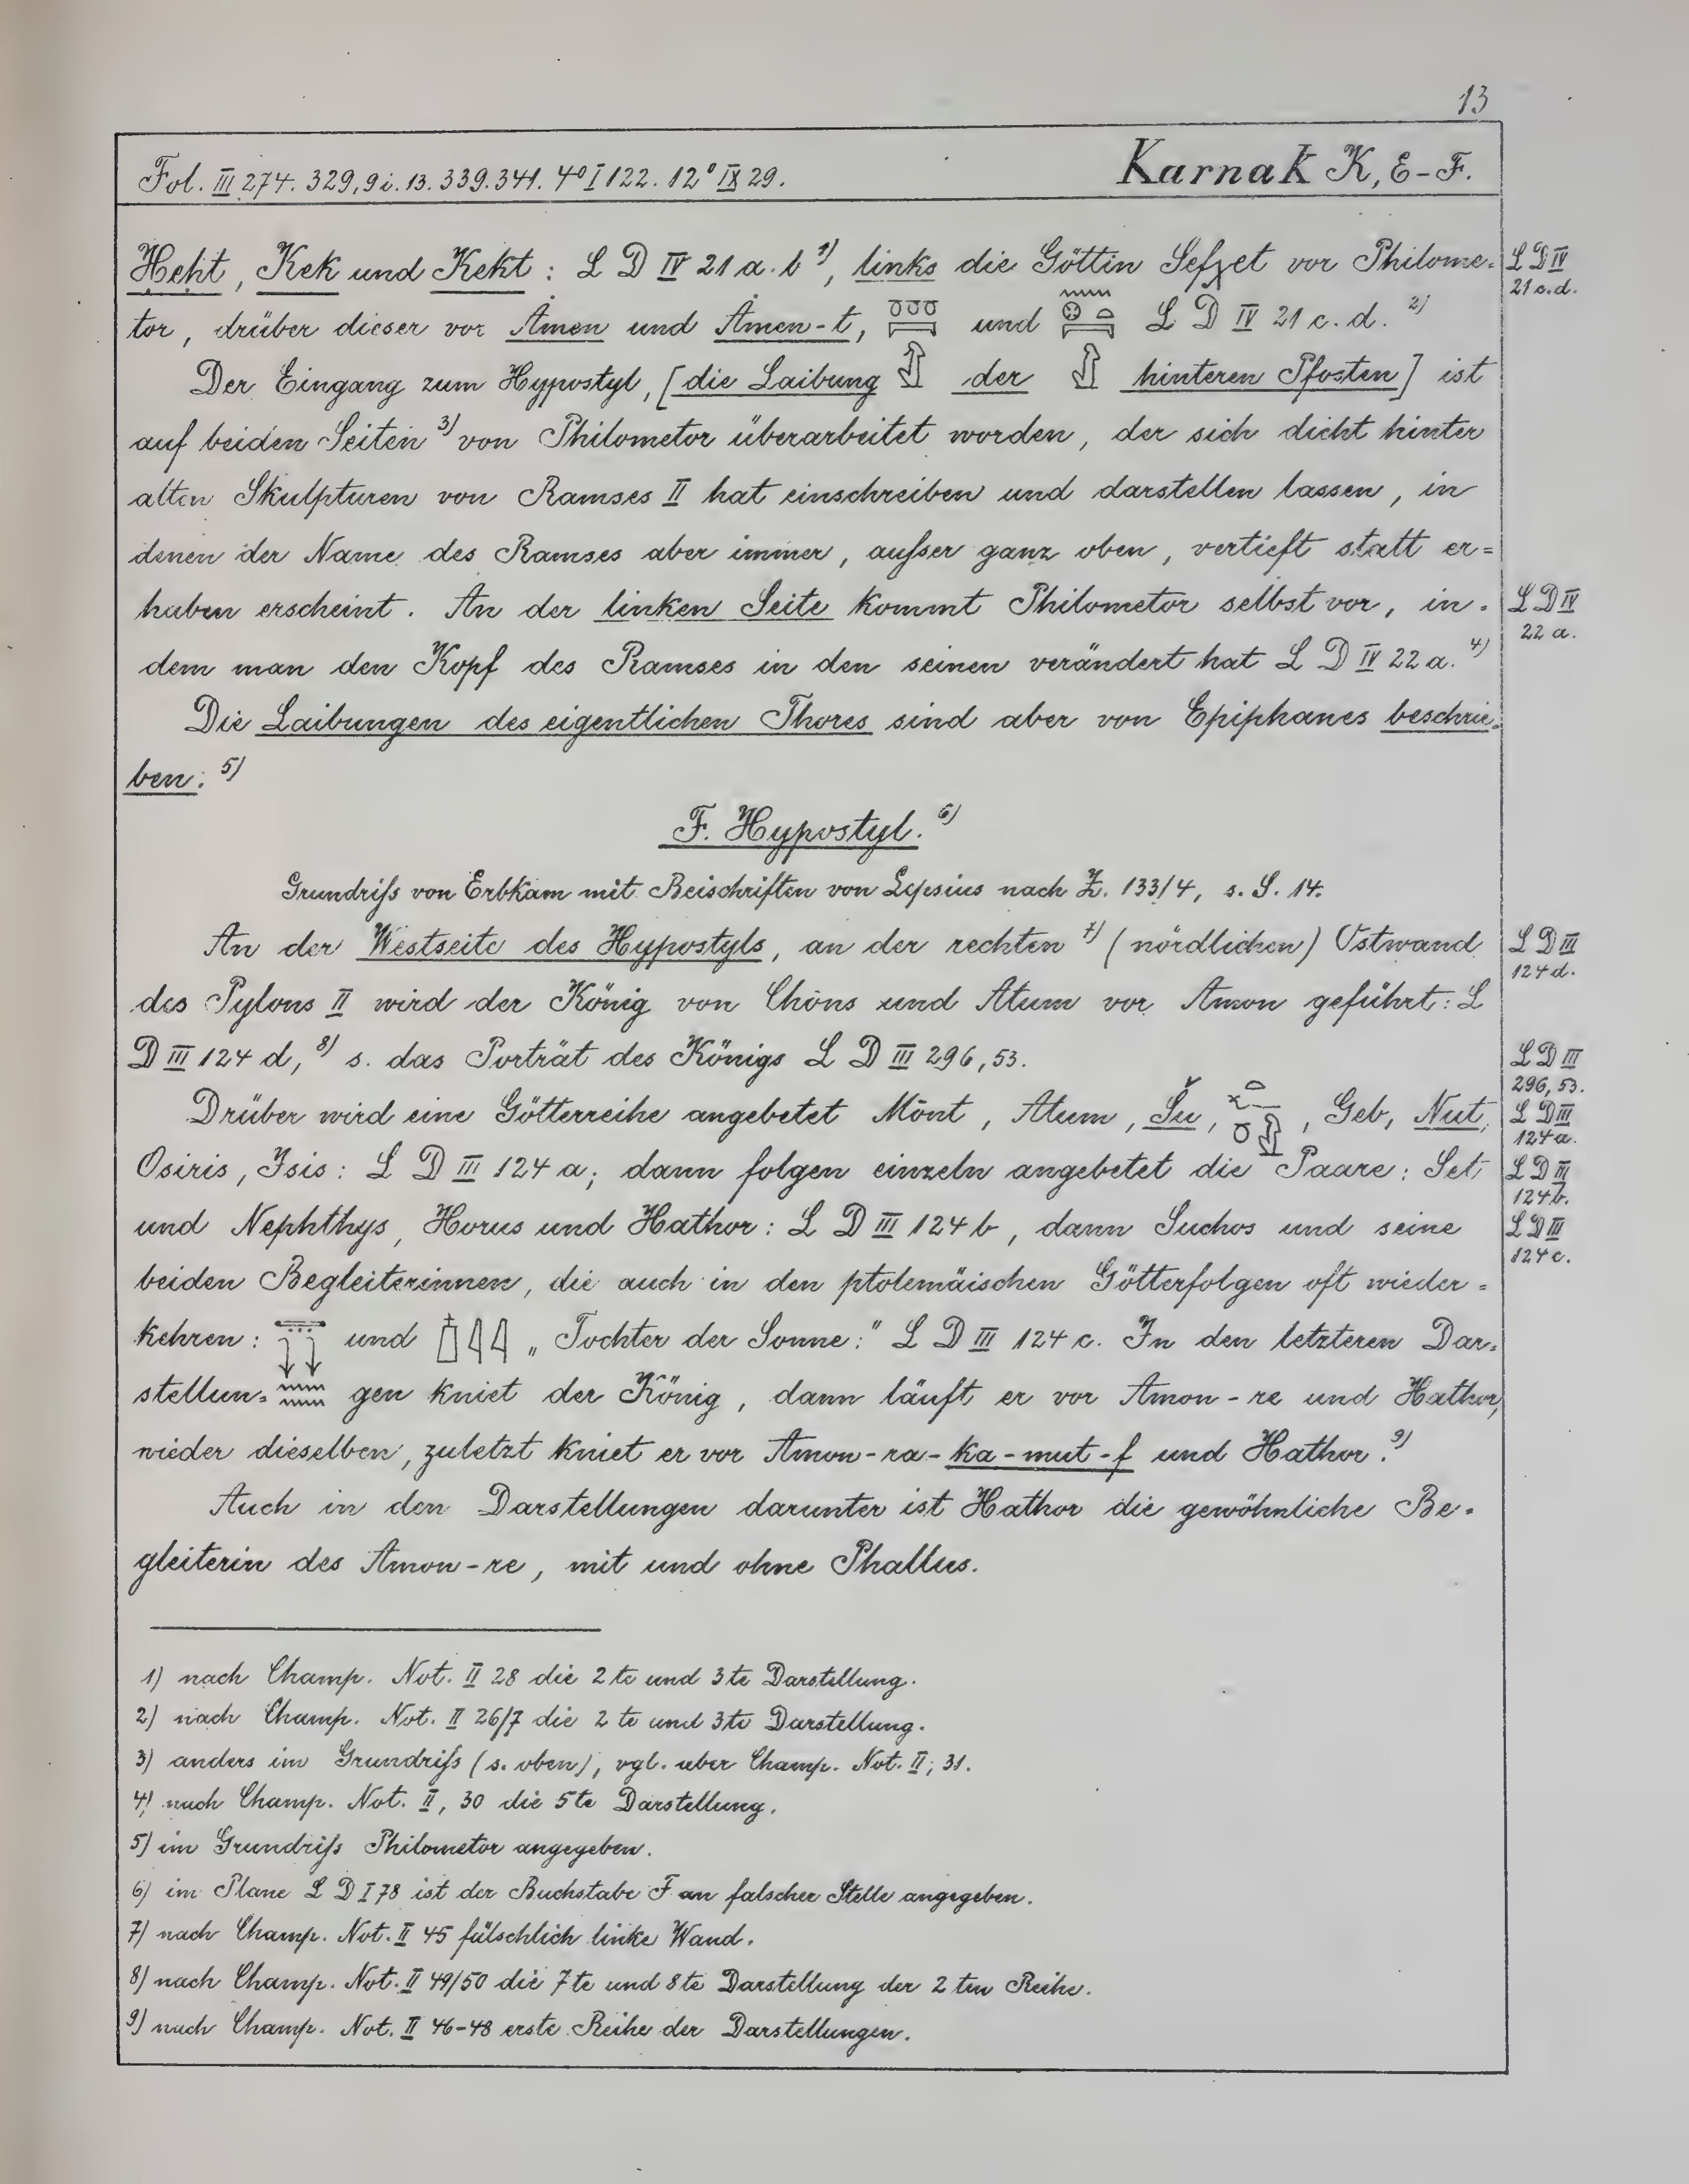 13
Fol. III 274. 329,9 i. 13. 339. 341. 4° I 122. 12° IX 29.
Karnak K, E-F.
Heht, Kek und Kekt: L D IV 21 a. b 1), links die Göttin Sefχet vor Philome-
L D IV
21 c.d.
tor, drüber dieser vor Ȧmen und Ȧmen-t, und L D IV 21 c. d. 2)
Der Eingang zum Hypostyl, [die Laibung der hinteren Pfosten] ist
auf beiden Seiten 3) von Philometor überarbeitet worden, der sich dicht hinter
alten Skulpturen von Ramses II hat einschreiben und darstellen lassen, in
denen der Name des Ramses aber immer, aufser ganz oben, vertieft statt er-
haben erscheint. An der linken Seite kommt Philometor selbst vor, in-
L D IV
22 a.
dem man den Kopf des Ramses in den seinen verändert hat L D IV 22 a. 4)
Die Laibungen des eigentlichen Thores sind aber von Epiphanes beschrie-
ben. 5)
F. Hypostyl. 6)
Grundrifs von Erbkam mit Beischriften von Lepsius nach Z. 133/4, s. S. 14.
An der Westseite des Hypostyls, an der rechten 7) (nördlichen) Ostwand
L D III
124 d.
des Pylons II wird der König von Chōns und Atum vor Amon geführt: L
D III 124 d, 8) s. das Porträt des Königs L D III 296, 53.
L D III
296, 53.
Drüber wird eine Götterreihe angebetet Mōnt, Atum, Šu, , Geb, Nut,
L D III
124 a.
Osiris, Isis: L D III 124 a; dann folgen einzeln angebetet die Paare: Set
L D III
124 b.
und Nephthys, Horus und Hathor: L D III 124 b, dann Suchos und seine
L D III
124 c.
beiden Begleiterinnen, die auch in den ptolemäischen Götterfolgen oft wieder-
kehren: und „Tochter der Sonne:" L D III 124 c. In den letzteren Dar-
stellun- gen kniet der König, dann läuft er vor Amon-re und Hathor,
wieder dieselben, zuletzt kniet er vor Amon-ra-ka-mut-f und Hathor. 9)
Auch in den Darstellungen darunter ist Hathor die gewöhnliche Be-
gleiterin des Amon-re, mit und ohne Phallus.
1) nach Champ. Not. II 28 die 2te und 3te Darstellung.
2) nach Champ. Not. II 26/7 die 2te und 3te Darstellung.
3) anders im Grundrifs (s. oben), vgl. aber Champ. Not. II, 31.
4) nach Champ. Not. II, 30 die 5te Darstellung.
5) im Grundrifs Philometor angegeben.
6) im Plane L D I 78 ist der Buchstabe F an falscher Stelle angegeben.
7) nach Champ. Not. II 45 fälschlich linke Wand.
8) nach Champ. Not. II 49/50 die 7te und 8te Darstellung der 2ten Reihe.
9) nach Champ. Not. II 46-48 erste Reihe der Darstellungen.